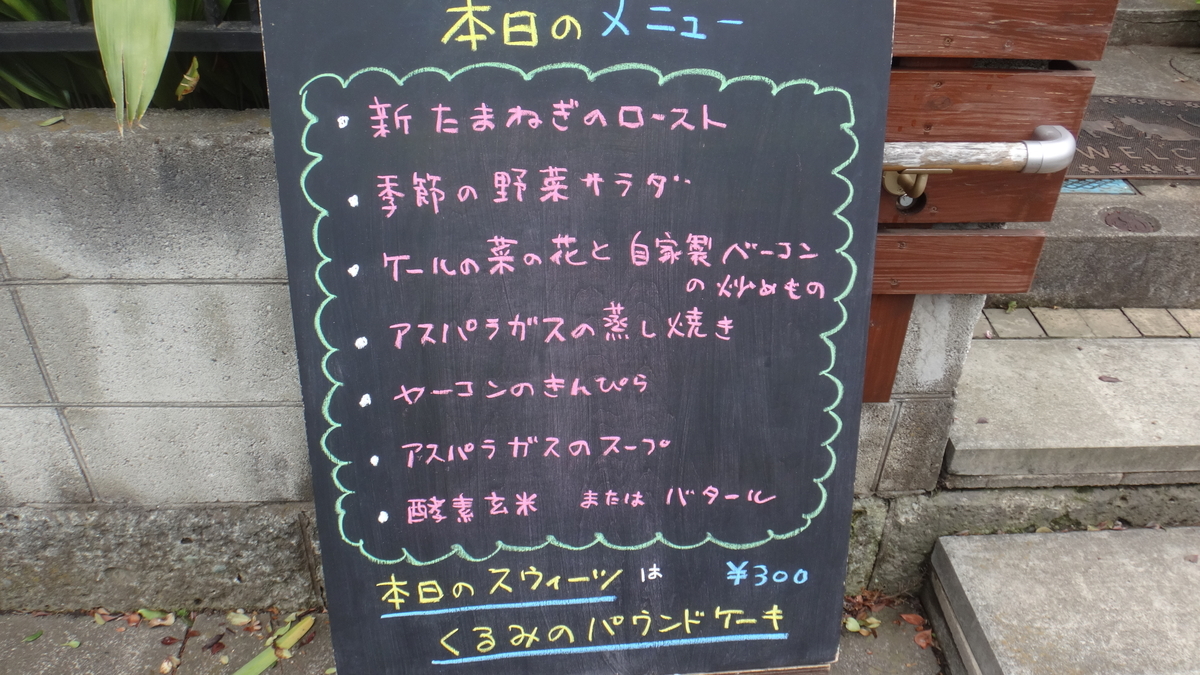 本日のメニュー
・新たまねぎのロースト
・季節の野菜サラダ
・ケールの菜の花と自家製ベーコン
の炒めもの
・アスパラガスの蒸し焼き
・ヤーコンのきんぴら
・アスパラガスのスープ
・酵素玄米 または バタール
本日のスウィーツ は ¥300
くるみのパウンドケーキ
WELC